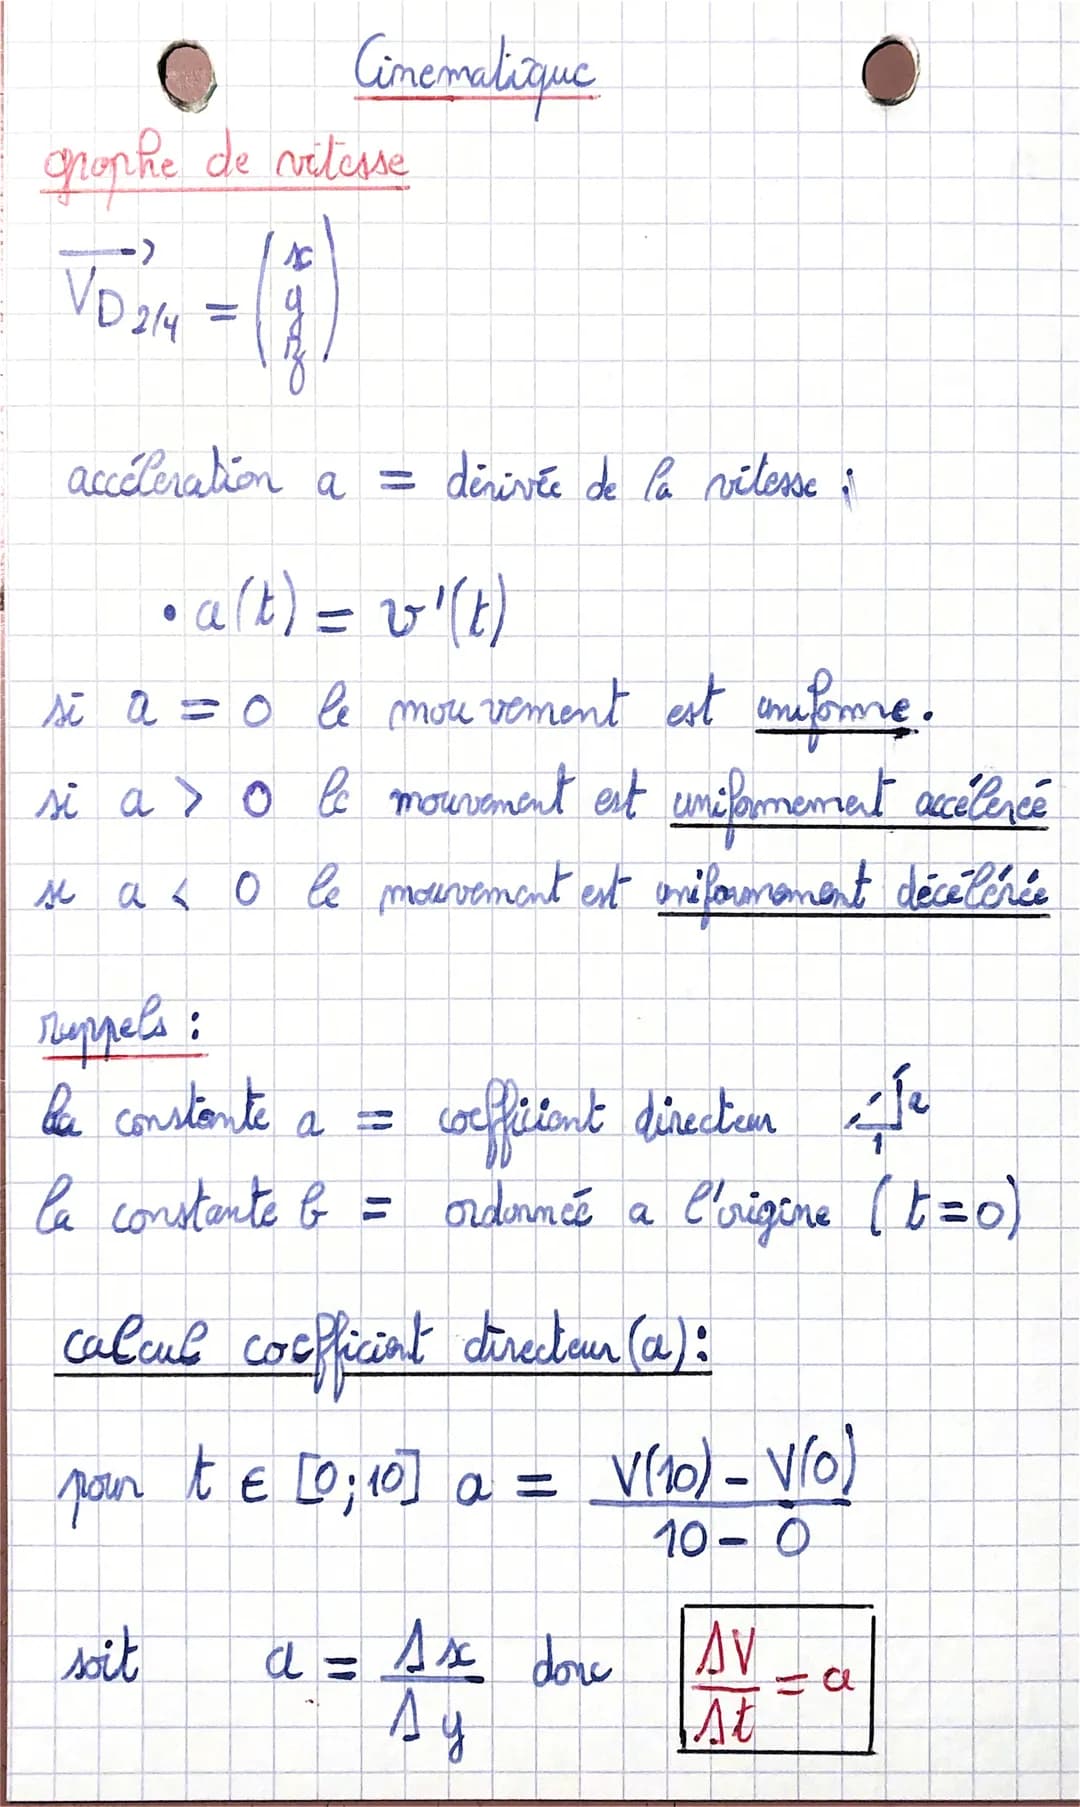 Cinematique
graphe de vitesse
V⃗D 2/4 = (x y z)
accéleration a = dérivée de la vitesse :
• a(t) = v'(t)
si a = 0 le mouvement est uniforme.
si a > 0 le mouvement est uniformement accéleréé
si a < 0 le mouvement est uniformement décélérée
rappels :
la constante a = coefficient directeur 1 a
la constante b = ordonnéé a l'origine (t=0)
calcul coefficient directeur (a) :
pour t ∈ [0;10] a = V(10) - V(0) / 10 - 0
soit a = Δx / Δy donc ΔV / Δt = a